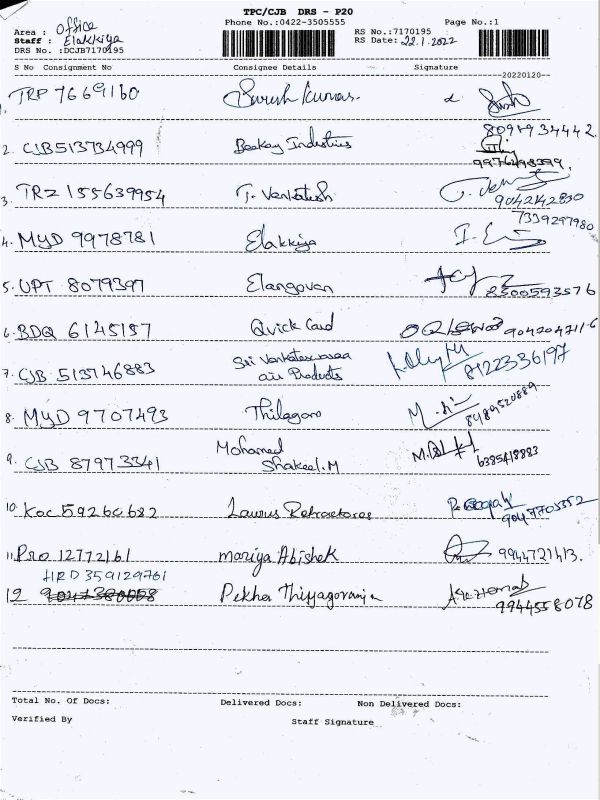 TPC/CJB DRS - P20
Phone No.:0422-3505555 Page No.:1
Area : Office
Staff : Elakkiya
DRS No. :DCJB7170195
RS No.:7170195
RS Date: 22.1.2022
S No Consignment No Consignee Details Signature
20220120--
1. TRP 7669160 Suresh Kumar.
8098934442
2. CJB513734999 Beekay Industries
9976498399.
3. TRZ 155639954 T. Venkatesh
9042142830
7339297980
4. MYD 9978781 Elakkiya
5. UPT 8079397 Elangovan
6. BDQ 6145157 Quick Card 9042047116
7. CJB 513746883 Sri Venkateswaraa
air Products 8122336197
8. MYD 9707493 8489520889
9. CJB 87973341 Mohamed
Shakeel.M 6385418883
10. KOC 59260682
11. PRO 12772161 Mariya Abishek 9944721413.
HRD 359129761
12 9944558078
Total No. Of Docs: Delivered Docs: Non Delivered Docs:
Verified By Staff Signature